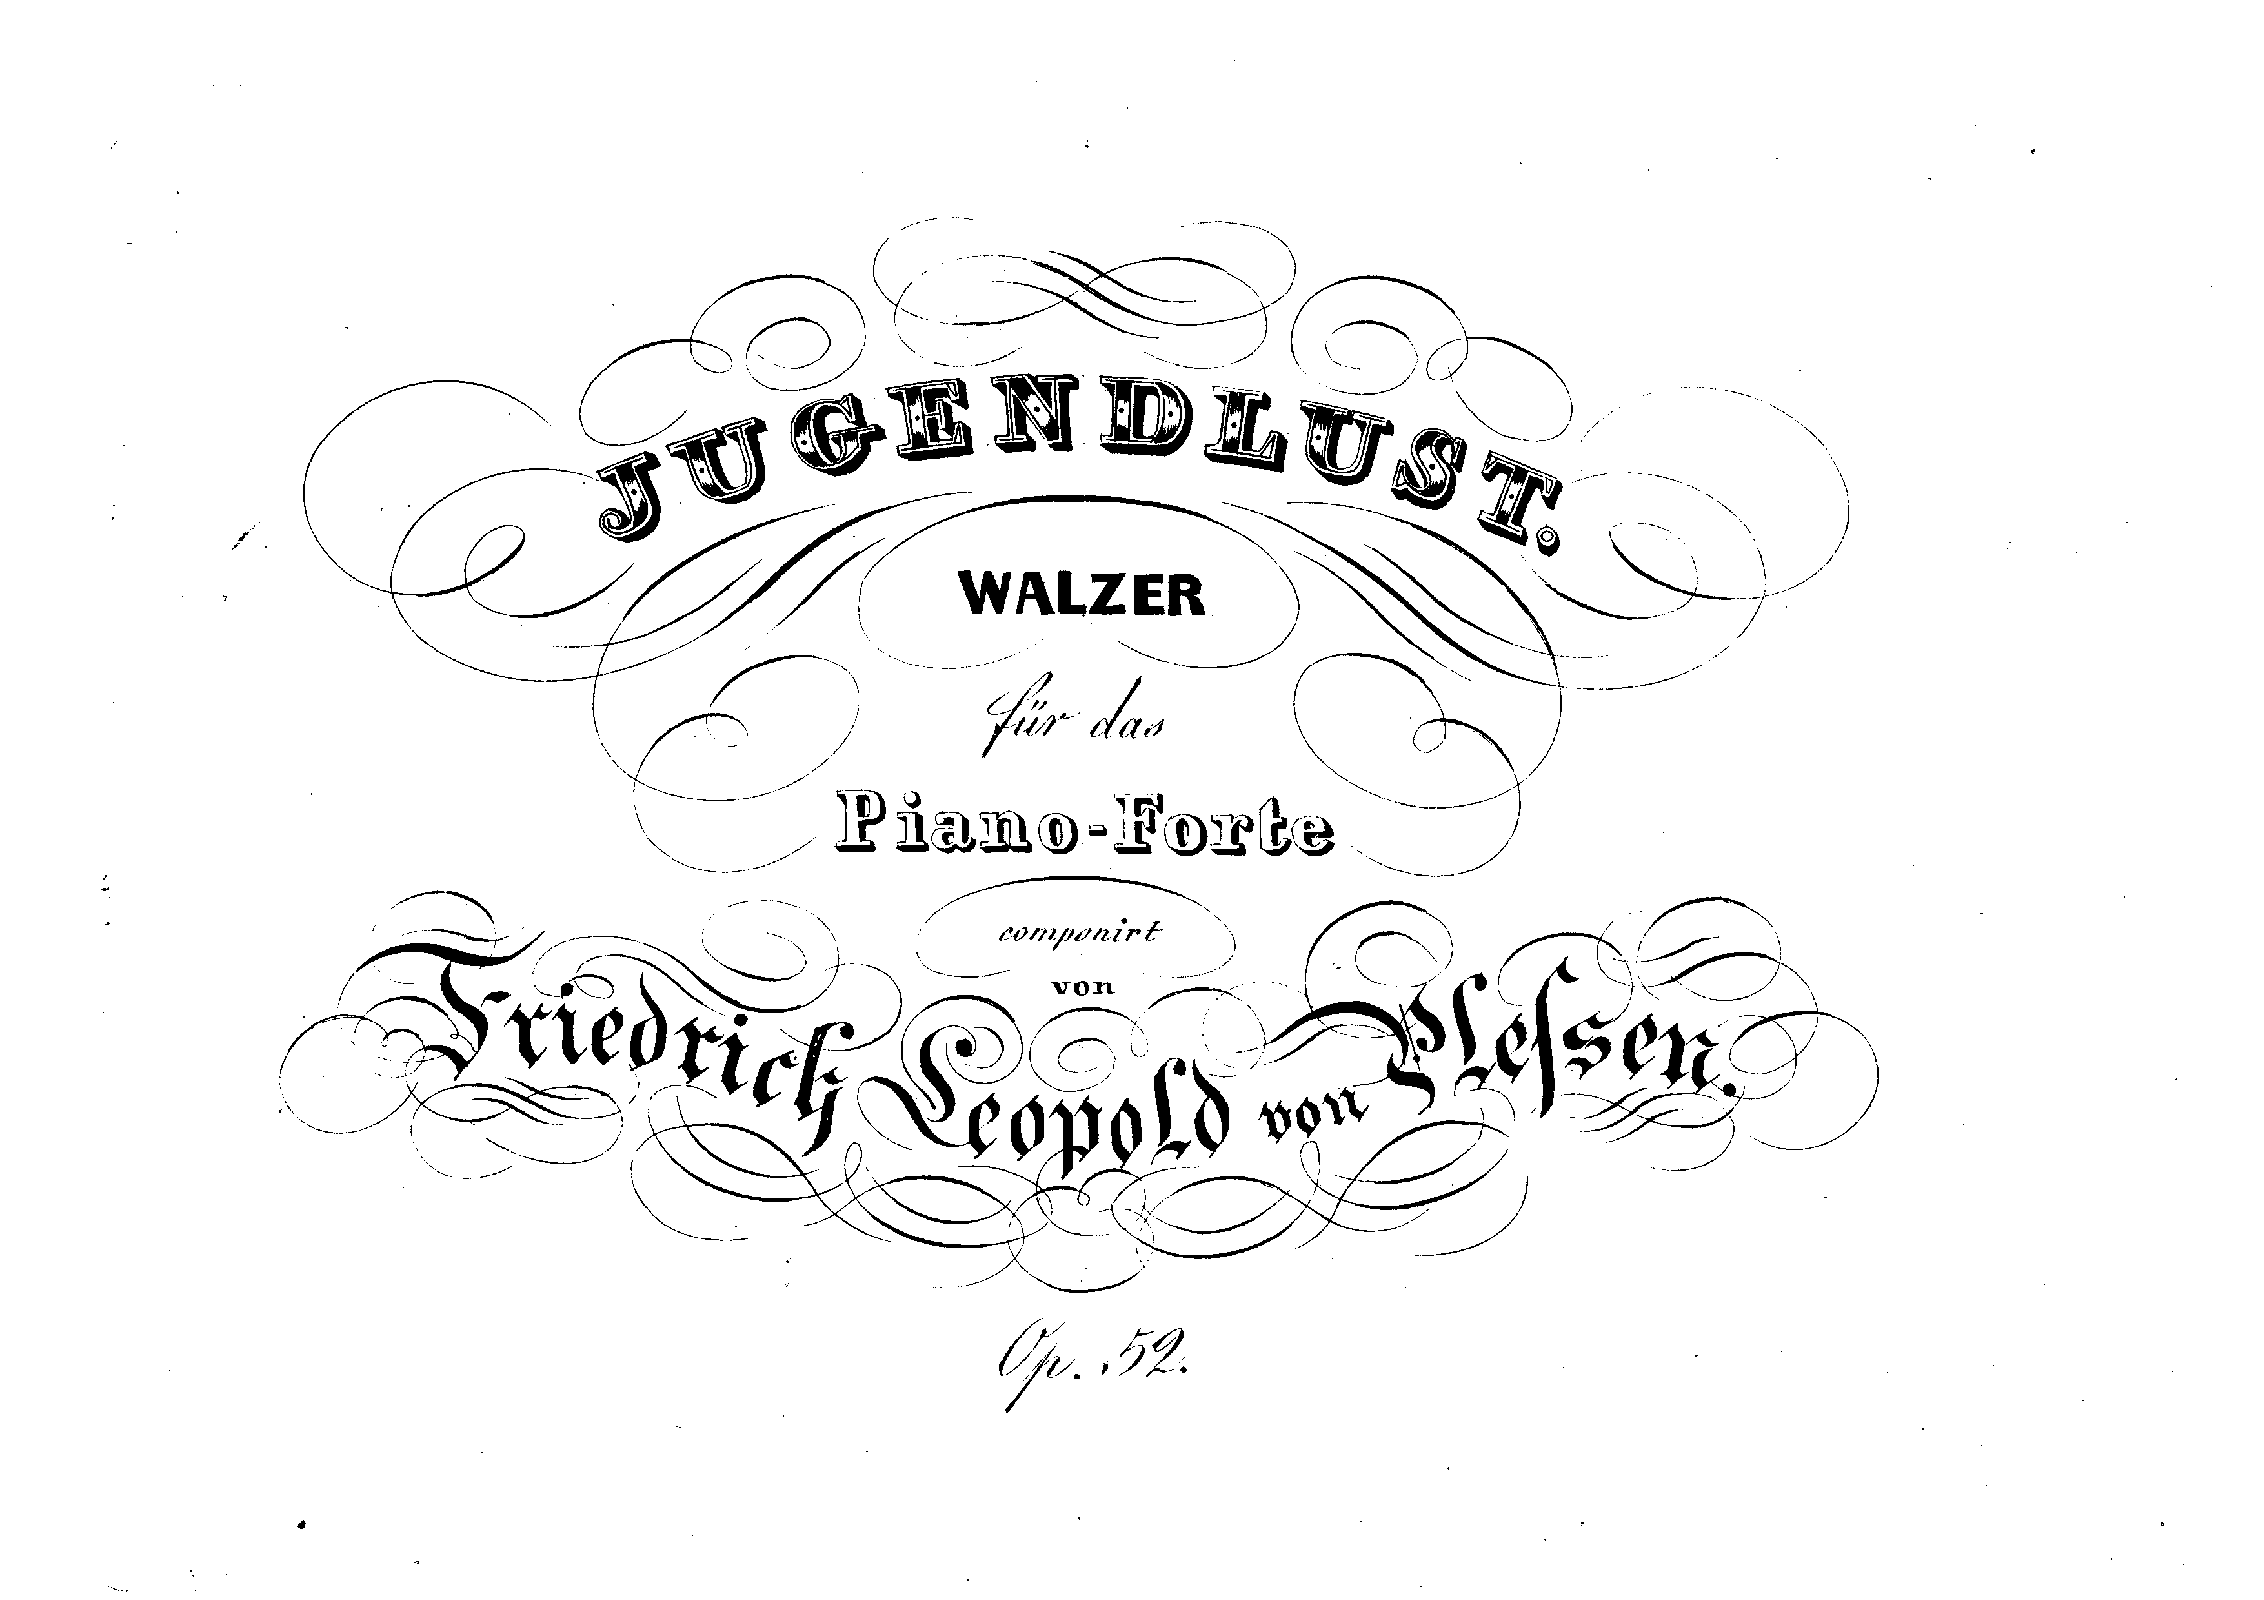 JUGENDLUST.
WALZER
für das
Piano-Forte
componirt
von
Friedrich Leopold von Plessen.
Op. 52.